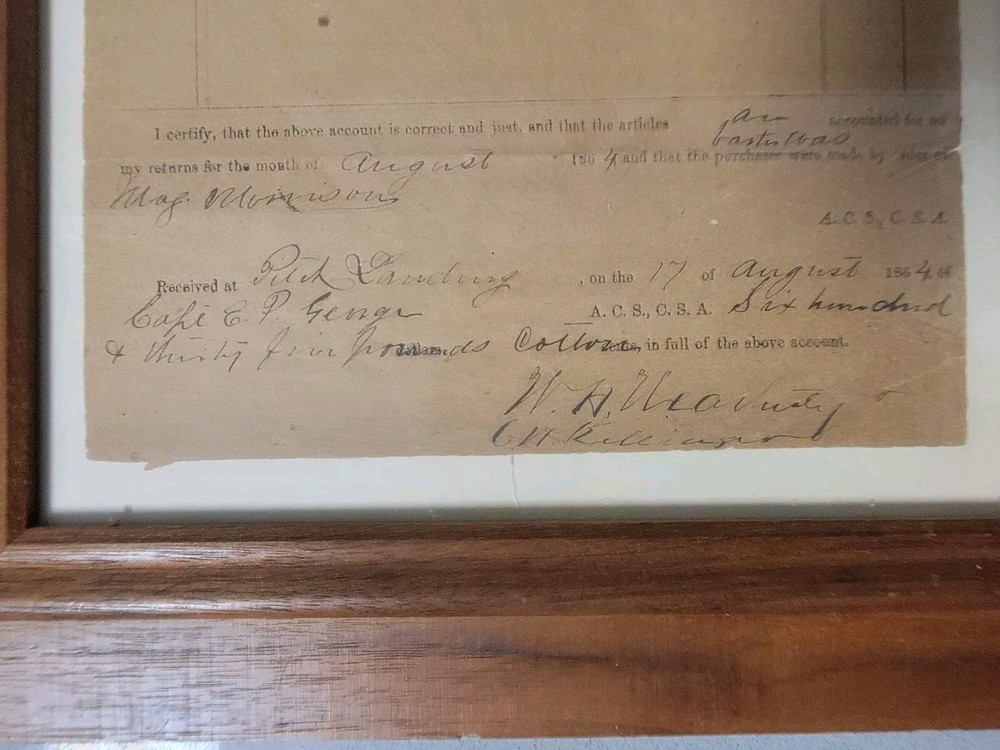 I certify, that the above account is correct and just, and that the articles are accounted for on
my returns for the month of August 1864 and that the purchases were made by order of
Maj. Morrison
A. C. S., C. S. A.
Received at Pitch Landing, on the 17 of August 1864, of
Capt E. P. George A. C. S., C. S. A. Six hundred
& thirty four pounds Cotton, in full of the above account.
W. H.